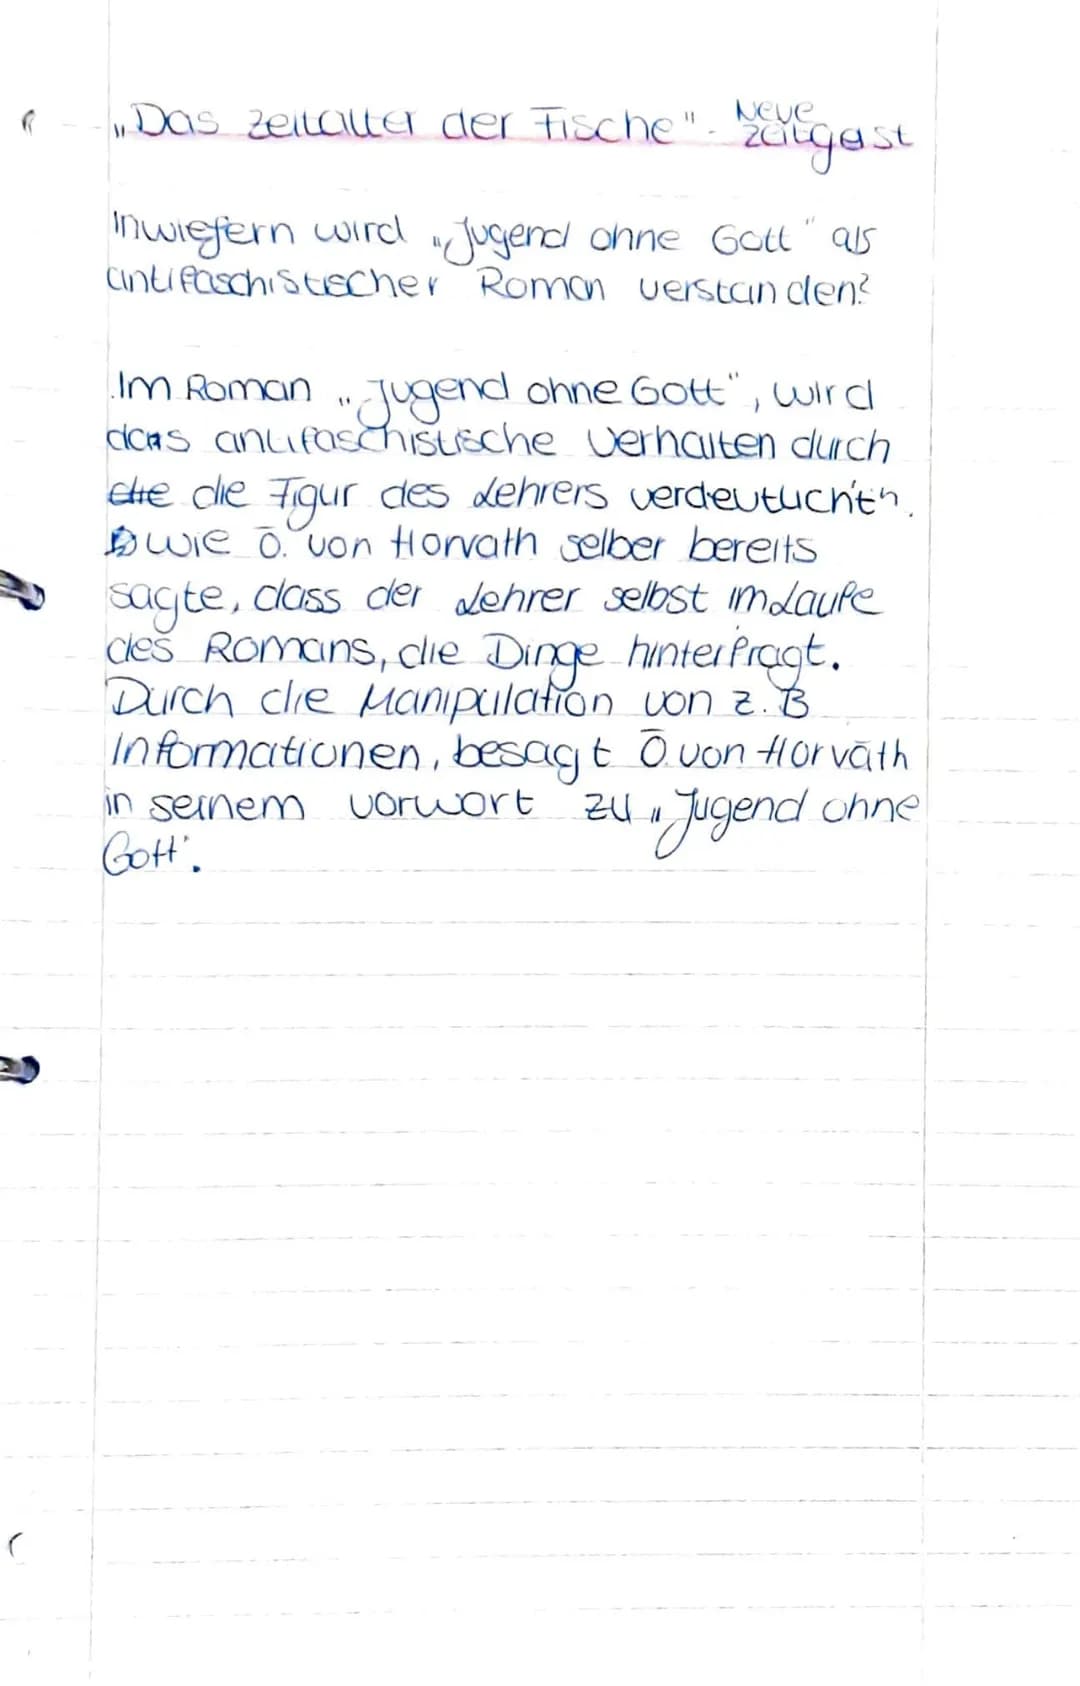 „Das Zeitalter der Fische" - Neue Zeitgeist
Inwiefern wird „Jugend ohne Gott" als
antifaschistischer Roman verstanden?
Im Roman „Jugend ohne Gott", wird
das antifaschistische Verhalten durch
die die Figur des Lehrers verdeutlicht.
wie Ö. von Horvath selber bereits
sagte, dass der Lehrer selbst im Laufe
des Romans, die Dinge hinterfragt.
Durch die Manipulation von z. B
Informationen, besagt Ö. von Horváth
in seinem Vorwort zu „Jugend ohne
Gott".